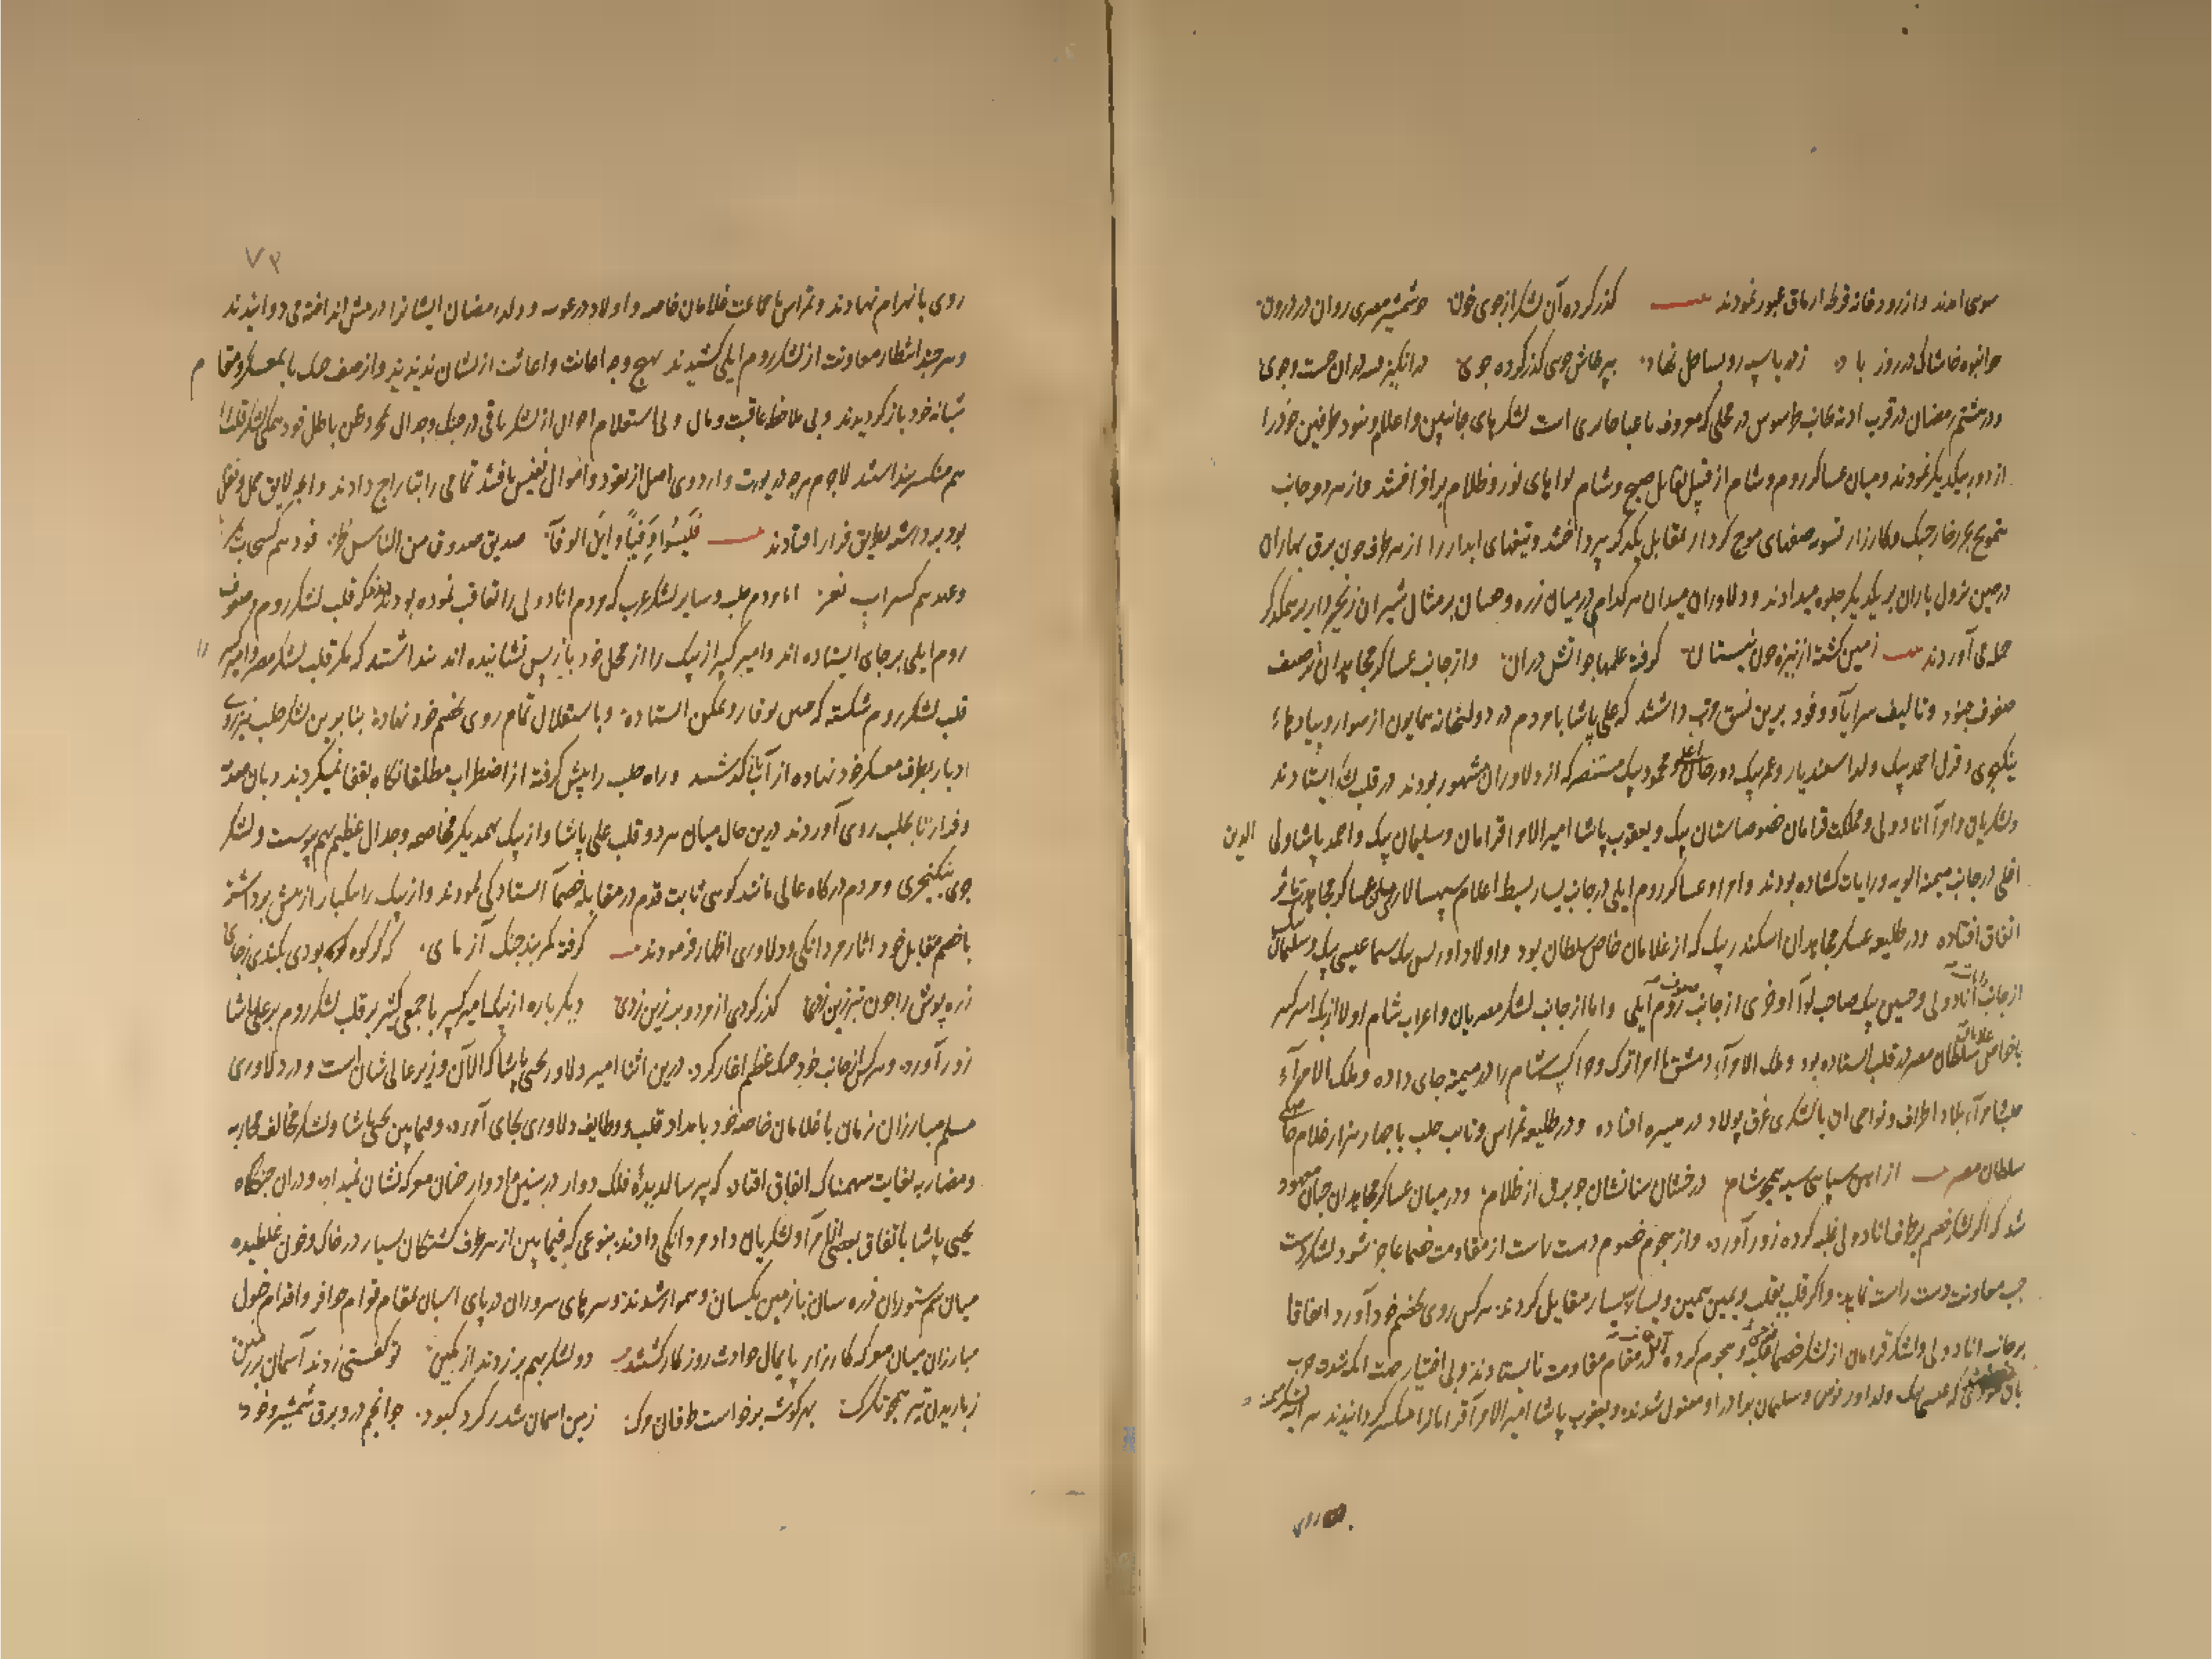 سوی امدند و از رودخانه قوطه ارماق عبور نمودند گذر کرده آن لشکر از جوی خون چو شمشیر مصری روان در درون
چو انبوه خاشاک در روز باد زده با سپه رو بساحل نهاد بپرخاش جویی گذر کرده جوی در انگیز در ان جست و جوی
و در هشتم رمضان در قرب ادنه بجانب طرسوس در محلی که معروف باغا چایری است لشکرهای جانبین و اعلام و بنود طرفین خود را
از دور بیکدیگر نمودند و میان عساکر روم و شام از قبیل تقابل صبح و شام لواهای نور و ظلام بر افراختند و از هر دو جانب
بتموج بحر زخار جنک و کارزار تسویه صفهای موج کردار بمقابل یکدیگر پرداختند و تیغهای ابدار را از هر طرف چون برق بهاران
در حین نزول باران بر یکدیگر جلوه میدادند و دلاوران میدان هر کدام در میان زره و خفتان بر مثال شیران زنجیردار بر همدیگر
حمله می آوردند زمین کشته از نیزه چون نیستان کرفته علمها چو اتش دران و از جانب عساکر مجاهدان ترصیف
صفوف جنود و تالیف سرایا و وفود برین نسق و ترتیب داشتند که علی پاشا با مردم در دولتخانه همایون از سوار و پیادهاء
ینکیچری و قزل احمد بیک ولد اسفندیار و عمر بیک دورخان اغلی و محمود بیک مستنصر که از دلاوران مشهور بودند در قلب لشکر ایستادند
و لشکریان و امرآء اناطولی و مملکت قرامان خصوصا سنان بیک و یعقوب پاشا امیر الامراء قرامان و سلیمان بیک و احمد پاشا ولی الدین
اغلی در جانب میمنه الویه و رایات کشاده بودند و امراء و عساکر روم ایلی در جانب یسار بسط اعلام سپهسالاری
اتفاق افتاده و در طلیعه عسکر مجاهدان اسکندر بیک که از غلامان خاص سلطان بود و اولاد اورنس بیک سیما عیسی بیک و سلیمان بیک
از جانب اناطولی و حسین بیک صاحب لوآء اوخری از جانب روم ایلی و اما از جانب لشکر مصریان و اعراب شام اولا ازبک امیر کبیر
با خواص غلامان سلطان مصر در قلب ایستاده بود و ملک الامرآء دمشق با امراء ترک و چراکسه شام را در میمنه جای داده و ملک الامرآء
حلب با امرآء بلاد اطراف و نواحی ان با لشکری غرق پولاد در میسره افتاده و در طلیعه تمراس و نایب حلب با چهار هزار غلام خاصکی
سلطان مصر از اهن سپاهی سیه همچو شام درخشان سنانشان چو برق از ظلام و در میان عساکر مجاهدان چنان معهود
شد که اکر لشکر خصم بر طرف اناطولی غلبه کرده زور آورد و از هجوم خصوم دست راست از مقاومت خصما عاجز شود لشکر دست
چپ معاونت دست راست نماید و اکر قلب بقلب و یمین بیمین و یسار بیسار مقابل کردند هر کس روی بخصم خود آورد اتفاقا
بر جانب اناطولی و لشکر قرامان از لشکر خصما غلبه و هجوم کرده در مقام مقاومت نایستادند و بی اختیار
که عیسی بیک ولد اورنوس و سلیمان برادر او مقتول شدند و یعقوب پاشا امیر الامرآء قرامان را منکسر کردانیدند
روی
۷۳
روی بانهزام نهادند و تمراس با جماعت غلامان خاصه و اولاد درعوسه و ولد رمضان ایشانرا در پیش انداخته می دوانیدند
و هر چند انتظار معاونت از لشکر روم ایلی کشیدند بهیچ وجه اعانت و اغاثت از ایشان ندیدند و از صف جنک تا بمعسکر و مقام
شبانه خود باز کردیدند و بی ملاحظه عاقبت و مال و بی استعلام احوال از لشکر باقی در جنک و جدال بمجرد ظن باطل خود همکی لشکر قلب را
هم منکسر پنداشتند لاجرم هرچه در یورت و اردوی اصل از نقود و اموال نفیس یافتند تمامی را بتاراج دادند و انچه لایق حمل و نقل
بود برداشته بطریق فرار افتادند فلیسوا وفیا و این الوفآ صدیق صدوق من الناس طرا
و عهدهم کسراب یغر اما مردم حلب و سایر لشکر عرب که مردم اناطولی را تعاقب نموده بودند قلب لشکر روم و صفوف
روم ایلی بر جای ایستاده اند و امیر کبیر ازبک را از محل خود باز پس نشانیده اند پنداشتند که مکر قلب لشکر مصر و امیر کبیر را
قلب لشکر روم شکسته که چنین بوقار و تمکن ایستاده و باستقلال تمام روی بخصم خود نهاده بنابرین لشکر حلب نیز روی
ادبار بطرف معسکر خود نهاده از آنجا نیز کذشتند و راه حلب را پیش کرفته از اضطراب مطلقا نکاه بقفا نمیکردند و بآن صدمه
و فرار تا بحلب روی آوردند درین حال میان هر دو قلب علی پاشا و ازبک بهمدیکر مخاصمه و جدال عظیم بهم پیوست و لشکر
جوی ینکیچری و مردم درکاه عالی مانند کوهی ثابت قدم در مقابله خصما ایستادکی نمودند و ازبک را یکبار از پیش برداشتند
با خصم مقابل خود اثار مردانکی و دلاوری اظهار فرمودند کرفته کمربند جنک آزمای که کر کوه بودی بکندی ز جای
زره پوش را چون تبرزین زدی کذر کردی از مرد و بر زین زدی دیکر باره ازبک امیر کبیر با جمعی کثیر بر قلب لشکر روم بر علی پاشا
زور آورد و هر کس از جانب خود جنک عظیم اغاز کرد درین اثنا امیر دلاور یحیی پاشا که الآن وزیر عالی شان است و در دلاوری
مسلم مبارزان زمان با غلامان خاصه خود بامداد قلب وظایف دلاوری بجای آورد و فیما بین یحیی پاشا و لشکر مخالف محاربه
و مضاربه بغایت سهمناک اتفاق افتاد که پیر سالدیدهٔ فلک دوار در سنین و ادوار چنان معرکه نشان نمیداد و دران جنکاه
یحیی پاشا باتفاق بعضی امرآء و لشکریان داد مردانکی دادند بنوعی که فیما بین از هر طرف کشتکان بسیار در خاک و خون غلطیده
میان سم ستوران ذره سان با زمین یکسان و هموار شدند و سرهای سروران در پای اسبان بمقام قوام حوافر و اقدام خیول
مبارزان میان معرکه کارزار پایمال حوادث روزکار کشتند دو لشکر بهم بر زدند از کمین تو کفتی زدند آسمان بر زمین
ز باریدن تیر همچو تکرک بهر کوشه برخواست طوفان مرک زمین اسمان شد ز کرد کبود چو انجم درو برق شمشیر و خود